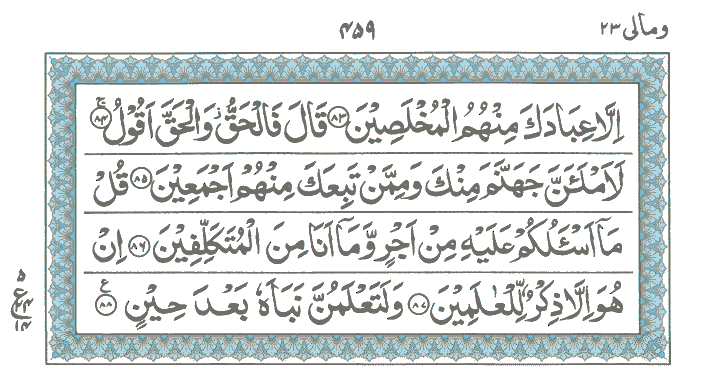 ومالی ۲۳
۴۵۹
اِلَّا عِبَادَكَ مِنْهُمُ الْمُخْلَصِيْنَ ﴿۸۳﴾ قَالَ فَالْحَقُّ ۫ وَالْحَقَّ اَقُوْلُ ﴿۸۴﴾ ۚ
لَاَمْلَـَٔنَّ جَهَنَّمَ مِنْكَ وَمِمَّنْ تَبِعَكَ مِنْهُمْ اَجْمَعِيْنَ ﴿۸۵﴾ قُلْ
مَاۤ اَسْـَٔلُكُمْ عَلَيْهِ مِنْ اَجْرٍ وَّمَاۤ اَنَا مِنَ الْمُتَكَلِّفِيْنَ ﴿۸۶﴾ اِنْ
هُوَ اِلَّا ذِكْرٌ لِّلْعٰلَمِيْنَ ﴿۸۷﴾ وَلَتَعْلَمُنَّ نَبَاَهٗ بَعْدَ حِيْنٍ ﴿۸۸﴾ ع
۵
ع
۱۴